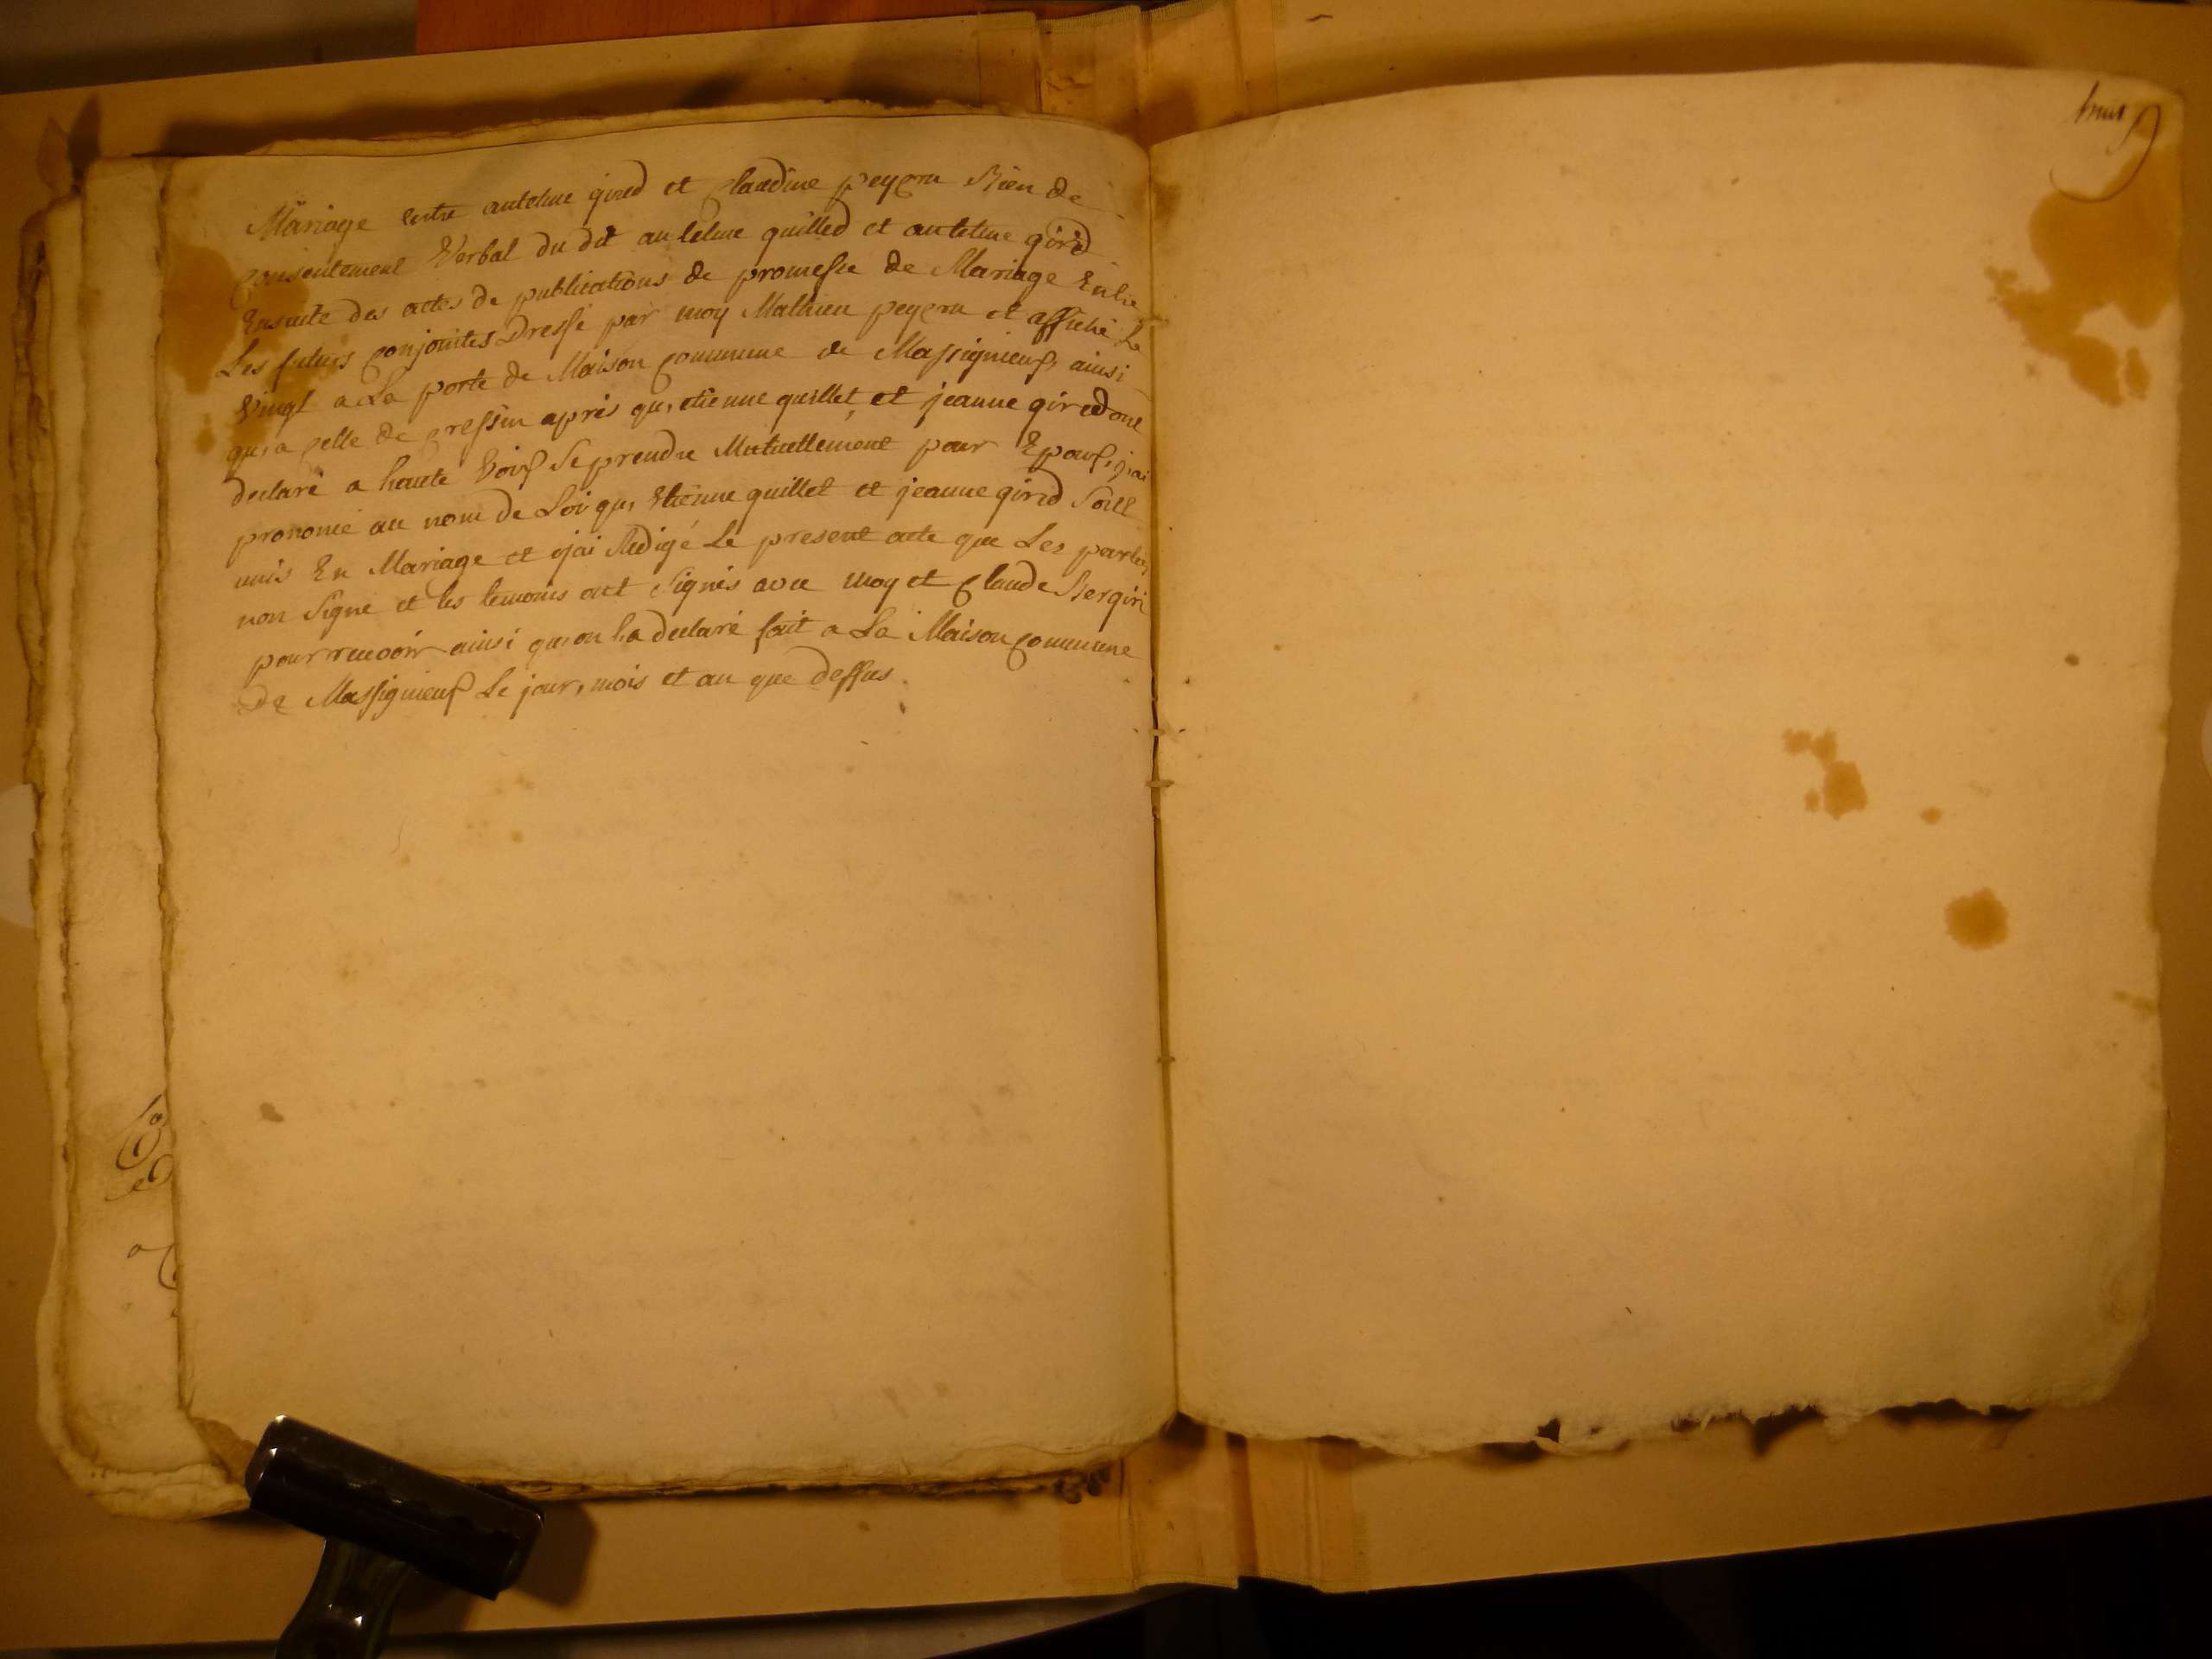 Mariage entre antelme gired et Claudine peycru Bien de
Consentement Verbal du dit antelme quilled et antelme girid
Ensuite des actes de publications de promesse de Mariage Entre
Les futurs Conjointes Dressé par moy Mathieu peycru et affiché Le
Vingt a La porte de Maison Commune de Massignieux, ainsi
qu,a Celle de Cressin après qu, etienne quillet, et jeanne gired ont
declaré a haute Voix Se prendre Mutuellement pour Epoux, j,ai
prononcé au nom de Loi qu, Etienne quillet et jeanne girid Sont
unis En Mariage et j'ai Redigé Le present acte que Les parties
non Signe et les temoins ont Signés avec moy et Claude Bergiri
pour recevoir ainsi qu,on La declaré fait a La Maison Commune
de Massignieux Le jour, mois et an que dessus.
huit